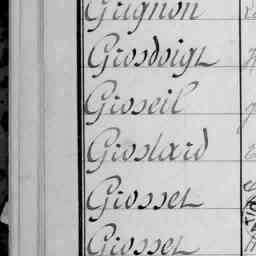 Grignon
Grosdoigt
Groseil
Groslard
Grosset
Grosset